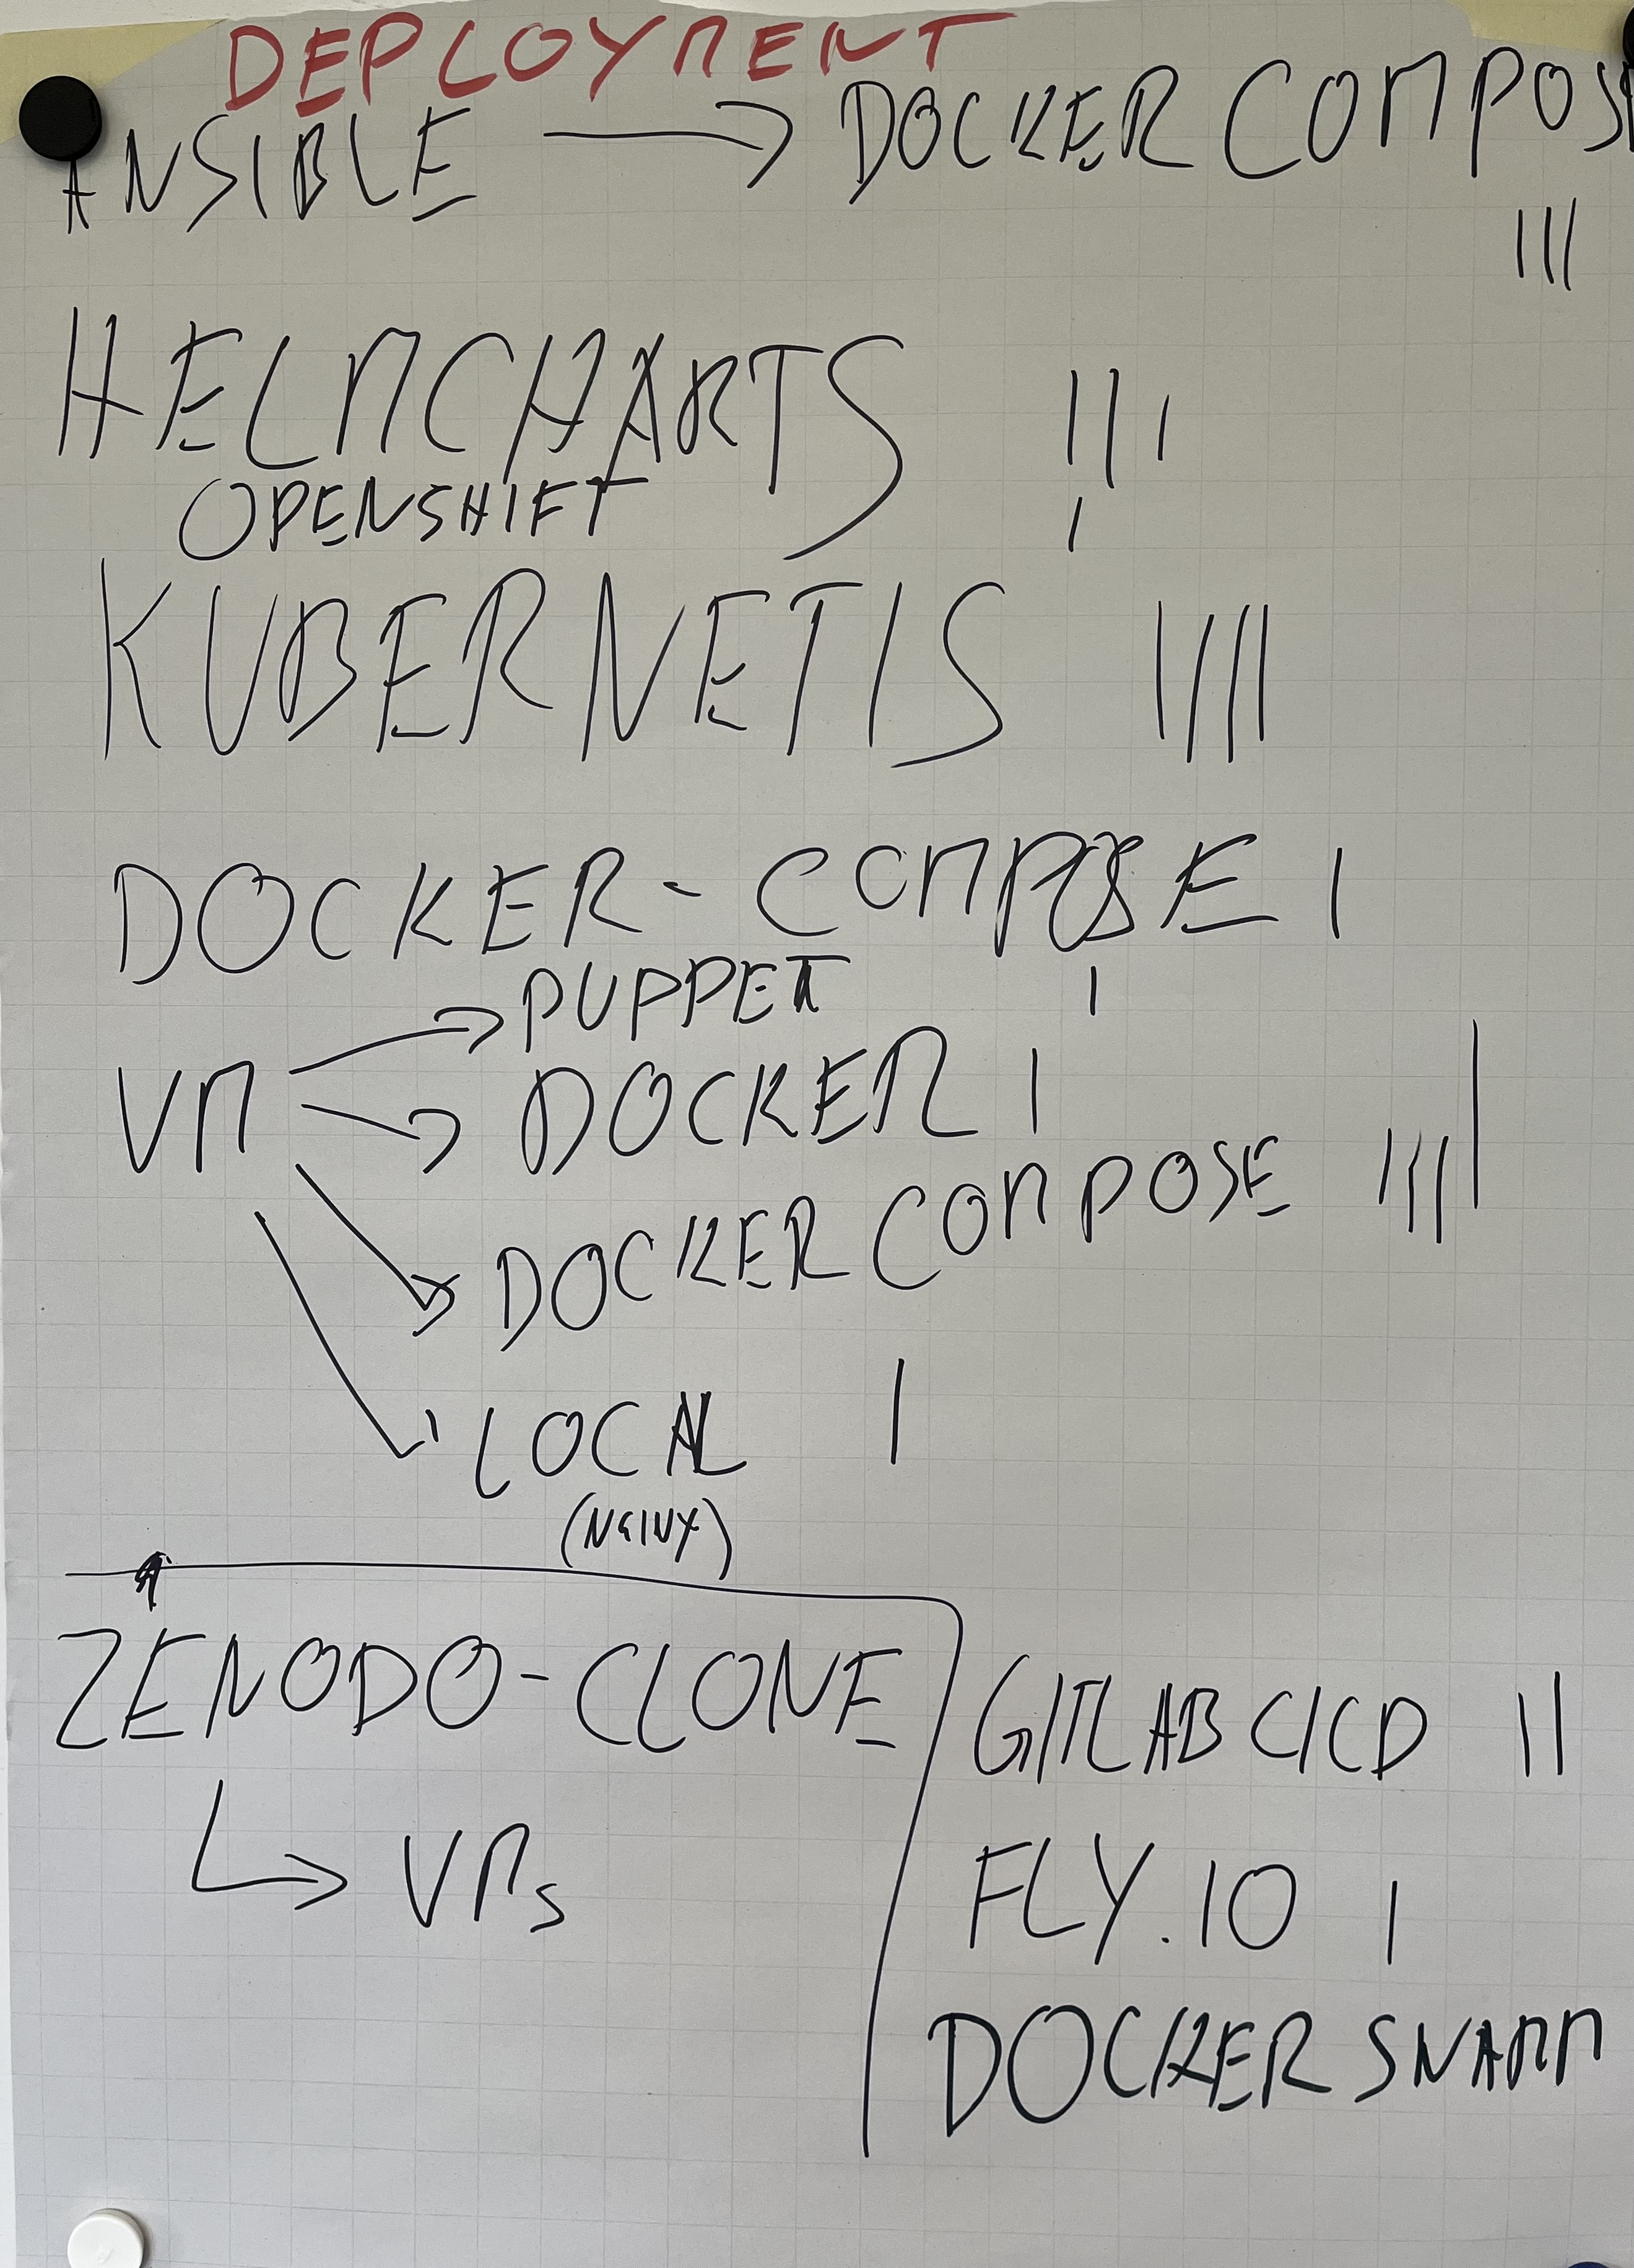 DEPLOYMENT
ANSIBLE → DOCKER COMPOS
III
HELMCHARTS III
OPENSHIFT I
KUBERNETIS IIII
DOCKER-COMPOSE I
PUPPET I
VM → DOCKER I
DOCKER COMPOSE IIII
LOCAL I
(NGINX)
ZENODO-CLONE
↳ VMs
GITLAB CICD II
FLY.IO I
DOCKER SWARM